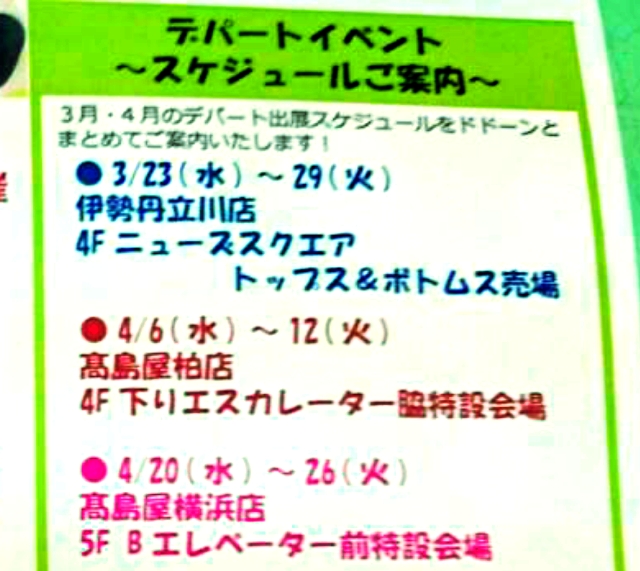 デパートイベント
〜スケジュールご案内〜
3月・4月のデパート出展スケジュールをドドーンと
まとめてご案内いたします！
● 3/23(水) 〜 29(火)
伊勢丹立川店
4F ニューズスクエア
トップス＆ボトムス売場
● 4/6(水) 〜 12(火)
髙島屋柏店
4F 下りエスカレーター脇特設会場
● 4/20(水) 〜 26(火)
髙島屋横浜店
5F B エレベーター前特設会場